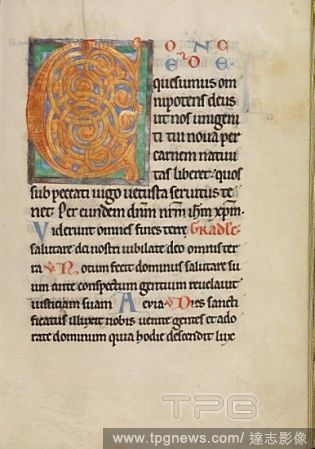 C O N C
E D E
quesumus om
nipotens deus
ut nos unigeni
ti tui noua per
carnem natiui
tas liberet quos
sub peccati iugo uetusta seruitus te
net. Per eundem dnm nrm ihm xpm.
Viderunt omnes fines terre Grad
salutare dei nostri iubilate deo omnis ter
ra V Notum fecit dominus salutare su
um ante conspectum gentium reuelauit
iusticiam suam Aeuia V Dies sancti
ficatus illuxit nobis uenite gentes et ado
rate dominum quia hodie descendit lux
TPG
www.tpgnews.com/ 達志影像